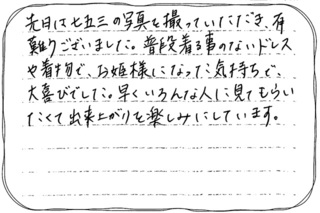 先日は七五三の写真を撮っていただき、有
難うございました。普段着る事のないドレス
や着物で、お姫様になった気持ちで、
大喜びでした。早くいろんな人に見てもらい
たくて出来上がりを楽しみにしています。